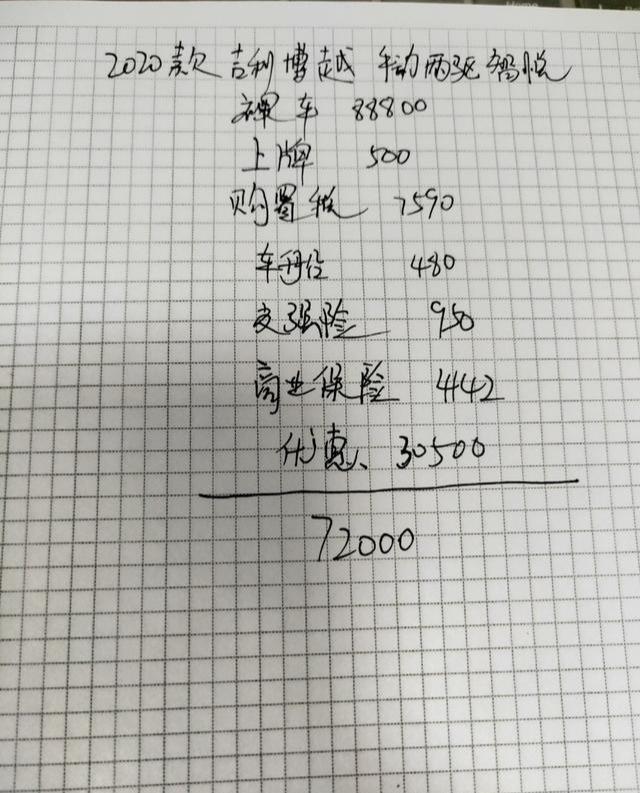 2020款 吉利博越 手动两驱智悦
裸车 88800
上牌 500
购置税 7590
车船 480
交强险 950
商业保险 4142
优惠、30500
72000